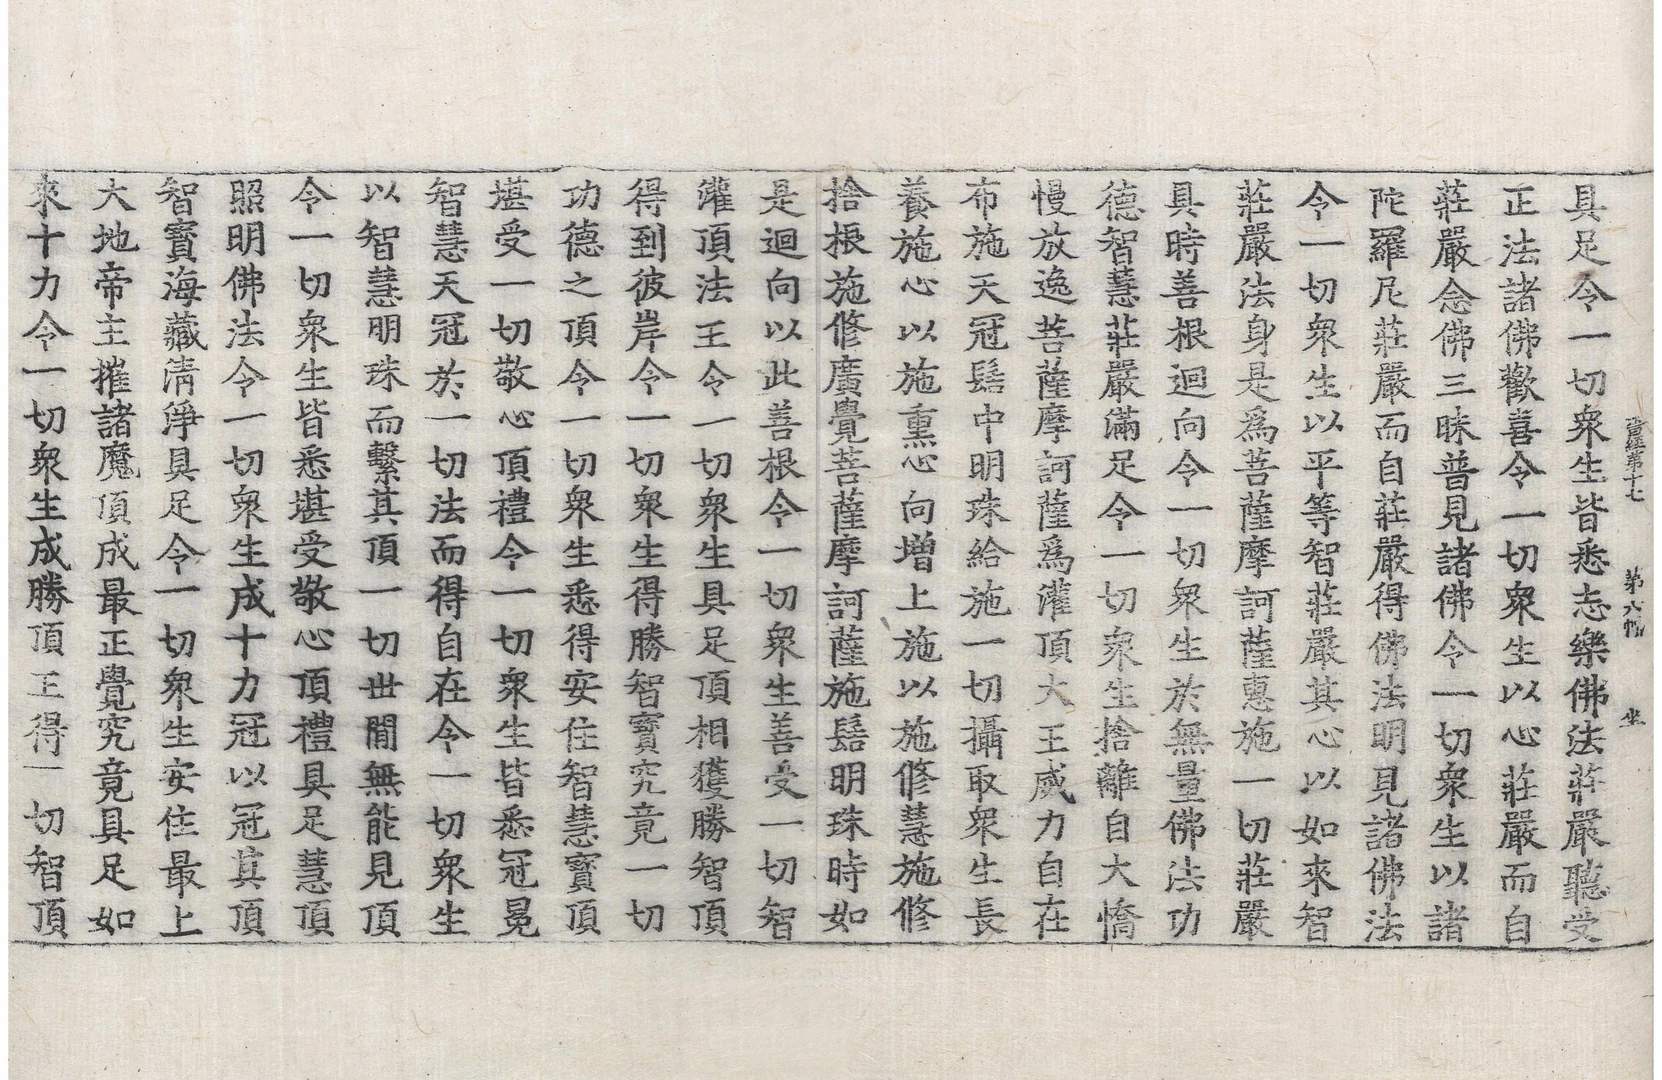 晉經第十七 第八幅 坐
具足令一切衆生皆悉志樂佛法莊嚴聽受
正法諸佛歡喜令一切衆生以心莊嚴而自
莊嚴念佛三昧普見諸佛令一切衆生以諸
陀羅尼莊嚴而自莊嚴得佛法明見諸佛法
令一切衆生以平等智莊嚴其心以如來智
莊嚴法身是爲菩薩摩訶薩惠施一切莊嚴
具時善根迴向令一切衆生於無量佛法功
德智慧莊嚴滿足令一切衆生捨離自大憍
慢放逸菩薩摩訶薩爲灌頂大王威力自在
布施天冠髻中明珠給施一切攝取衆生長
養施心以施熏心向增上施以施修慧施修
捨根施修廣覺菩薩摩訶薩施髻明珠時如
是迴向以此善根令一切衆生善受一切智
灌頂法王令一切衆生具足頂相獲勝智頂
得到彼岸令一切衆生得勝智寶究竟一切
功德之頂令一切衆生悉得安住智慧寶頂
堪受一切敬心頂禮令一切衆生皆悉冠冕
智慧天冠於一切法而得自在令一切衆生
以智慧明珠而繫其頂一切世間無能見頂
令一切衆生皆悉堪受敬心頂禮具足慧頂
照明佛法令一切衆生成十力冠以冠其頂
智寶海藏淸淨具足令一切衆生安住最上
大地帝主摧諸魔頂成最正覺究竟具足如
來十力令一切衆生成勝頂王得一切智頂